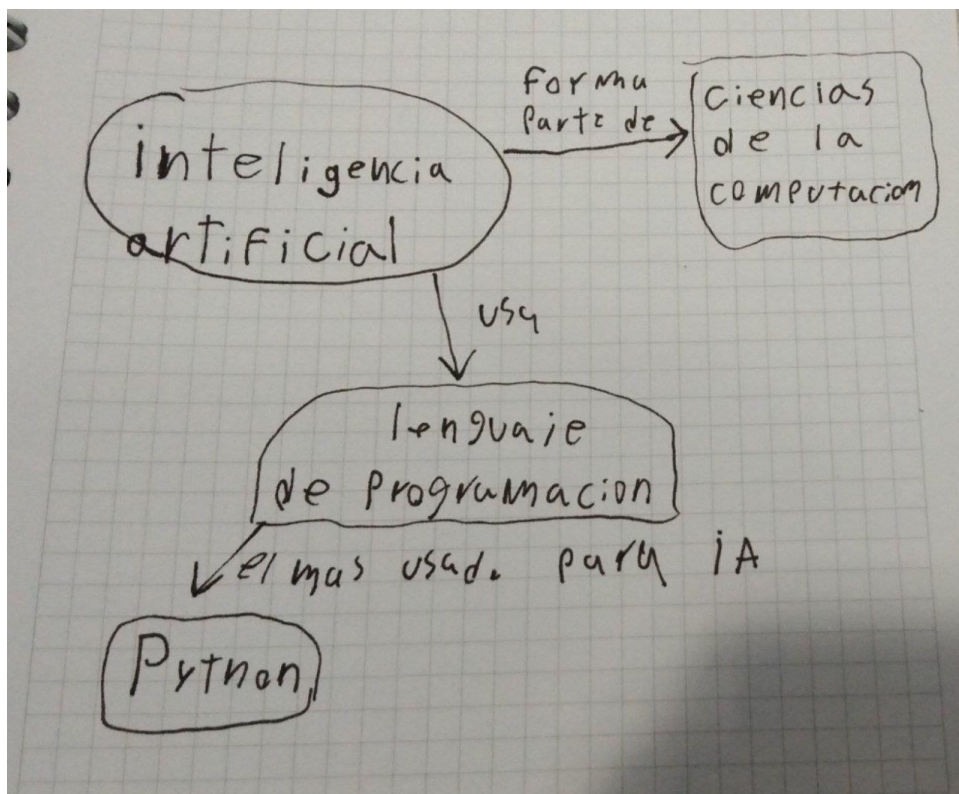 inteligencia
artificial
Forma
Parte de
Ciencias
de la
computacion
usa
lenguaje
de Programacion
el mas usado para iA
Python